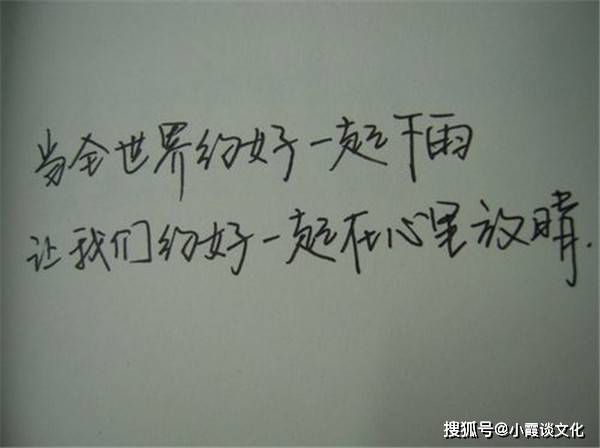 当全世界约好一起下雨
让我们约好一起在心里放晴.
搜狐号@小霞谈文化